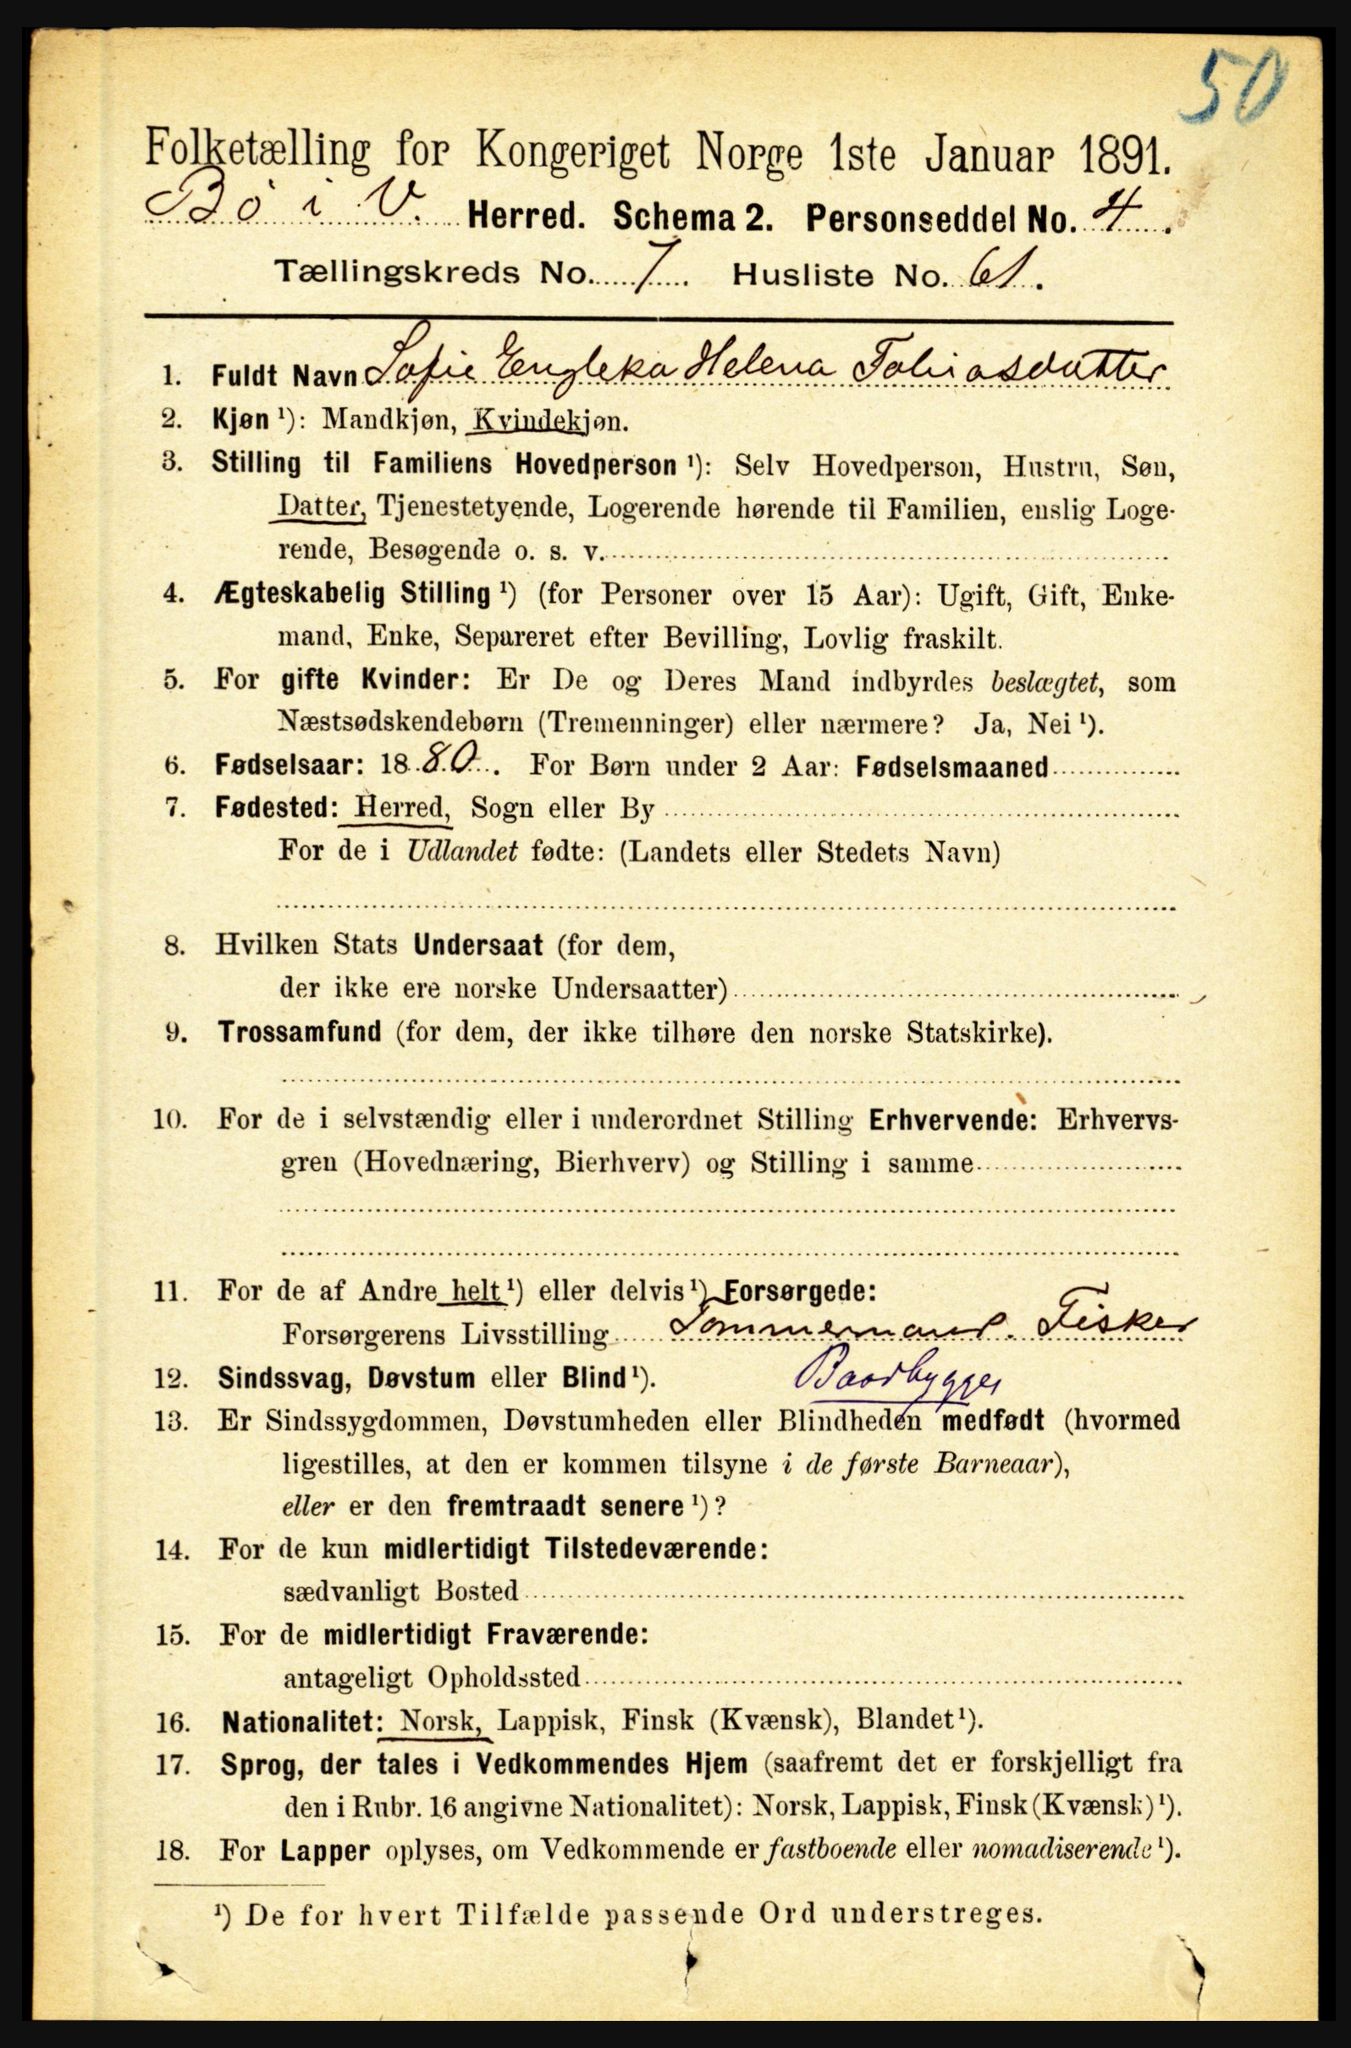 50
Folketælling for Kongeriget Norge 1ste Januar 1891.
Bø i V. Herred. Schema 2. Personseddel No. 4.
Tællingskreds No. 7. Husliste No. 61.
1. Fuldt Navn Sofie Engleka Helena Tobiasdatter
2. Kjøn ¹): Mandkjøn, Kvindekjøn.
3. Stilling til Familiens Hovedperson ¹): Selv Hovedperson, Hustru, Søn,
Datter, Tjenestetyende, Logerende hørende til Familien, enslig Loge-
rende, Besøgende o. s. v.
4. Ægteskabelig Stilling ¹) (for Personer over 15 Aar): Ugift, Gift, Enke-
mand, Enke, Separeret efter Bevilling, Lovlig fraskilt.
5. For gifte Kvinder: Er De og Deres Mand indbyrdes beslægtet, som
Næstsødskendebørn (Tremenninger) eller nærmere? Ja, Nei ¹).
6. Fødselsaar: 1880. For Børn under 2 Aar: Fødselsmaaned
7. Fødested: Herred, Sogn eller By
For de i Udlandet fødte: (Landets eller Stedets Navn)
8. Hvilken Stats Undersaat (for dem,
der ikke ere norske Undersaatter)
9. Trossamfund (for dem, der ikke tilhøre den norske Statskirke).
10. For de i selvstændig eller i underordnet Stilling Erhvervende: Erhvervs-
gren (Hovednæring, Bierhverv) og Stilling i samme
11. For de af Andre helt ¹) eller delvis ¹) Forsørgede:
Forsørgerens Livsstilling Tommermand. Fisker
12. Sindssvag, Døvstum eller Blind ¹). Baadbygger
13. Er Sindssygdommen, Døvstumheden eller Blindheden medfødt (hvormed
ligestilles, at den er kommen tilsyne i de første Barneaar),
eller er den fremtraadt senere ¹)?
14. For de kun midlertidigt Tilstedeværende:
sædvanligt Bosted
15. For de midlertidigt Fraværende:
antageligt Opholdssted
16. Nationalitet: Norsk, Lappisk, Finsk (Kvænsk), Blandet ¹).
17. Sprog, der tales i Vedkommendes Hjem (saafremt det er forskjelligt fra
den i Rubr. 16 angivne Nationalitet): Norsk, Lappisk, Finsk (Kvænsk) ¹).
18. For Lapper oplyses, om Vedkommende er fastboende eller nomadiserende ¹).
¹) De for hvert Tilfælde passende Ord understreges.